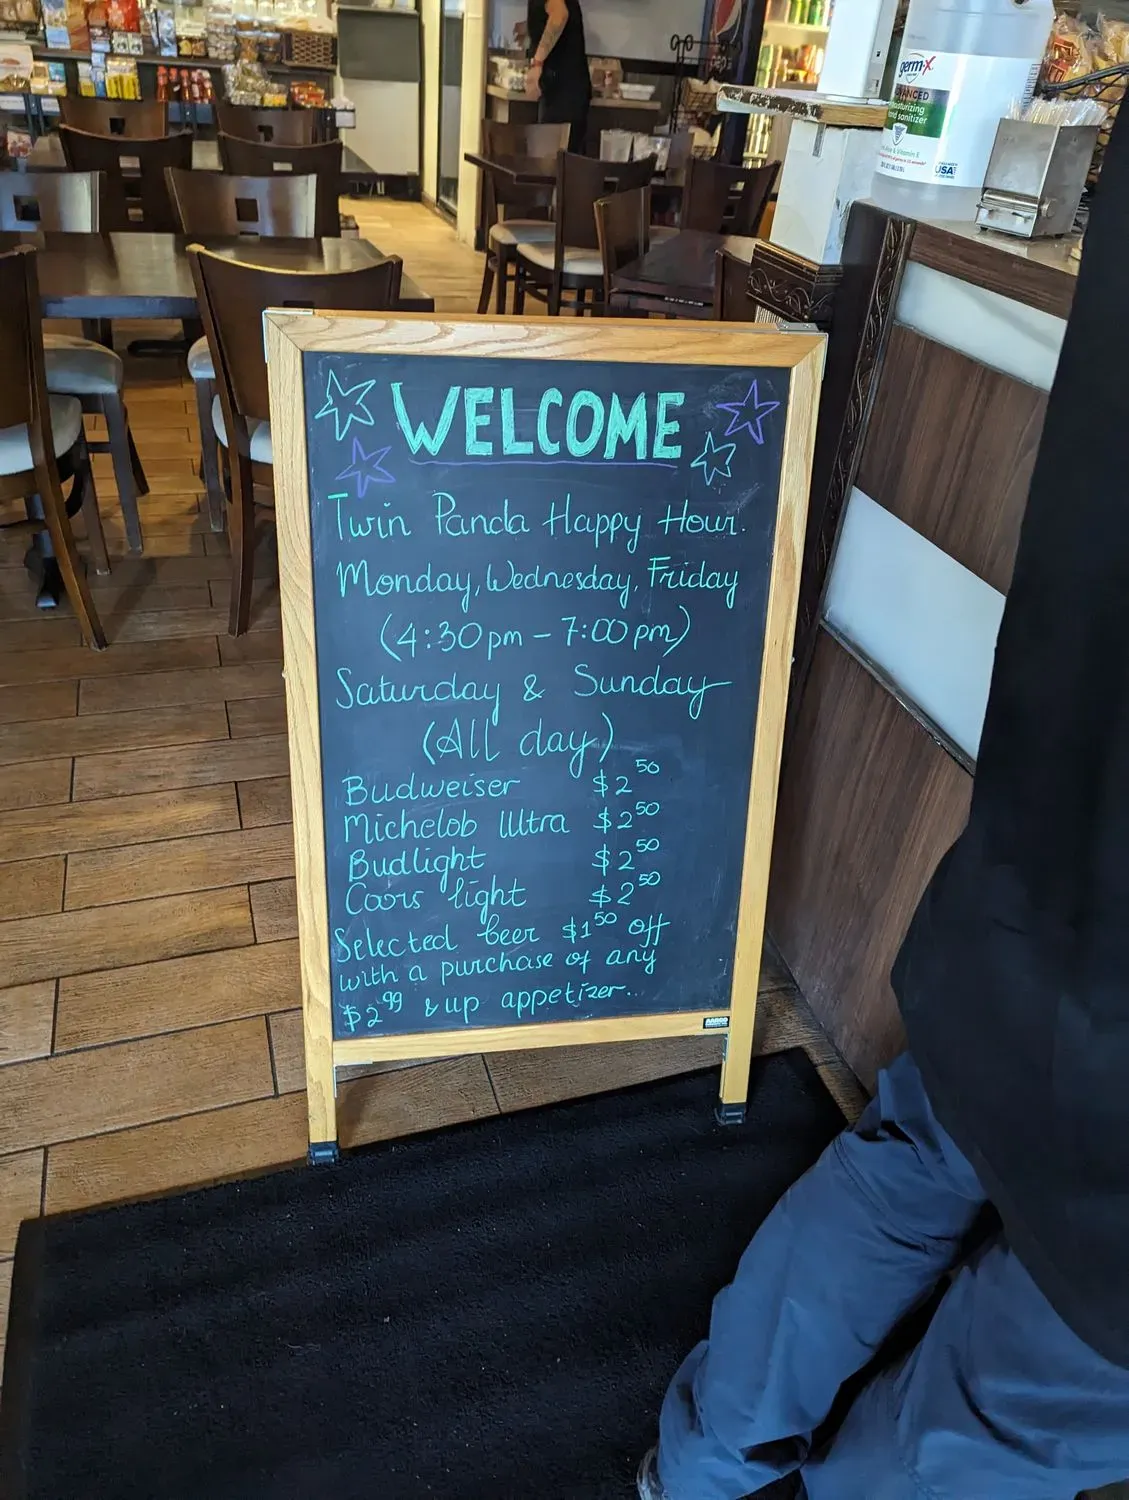 WELCOME
Twin Panda Happy Hour.
Monday, Wednesday, Friday
(4:30pm - 7:00pm)
Saturday & Sunday
(All day)
Budweiser $2 50
Michelob Ultra $2 50
Budlight $2 50
Coors light $2 50
Selected beer $1 50 off
with a purchase of any
$2 99 & up appetizer..
germ-x
ADVANCED
hand sanitizer
USA